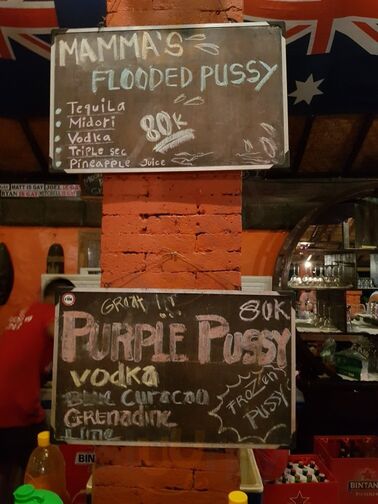 MAMMA'S
FLOODED PUSSY
Tequila
Midori
Vodka
Triple sec
Pineapple Juice
80K
GREAT !!!
80K
PURPLE PUSSY
VODKA
BLUE Curacau
GRENADINE
LIME
FROZEN
PUSSY
MATT IS GAY JOEL
BINTANG
BINTAN